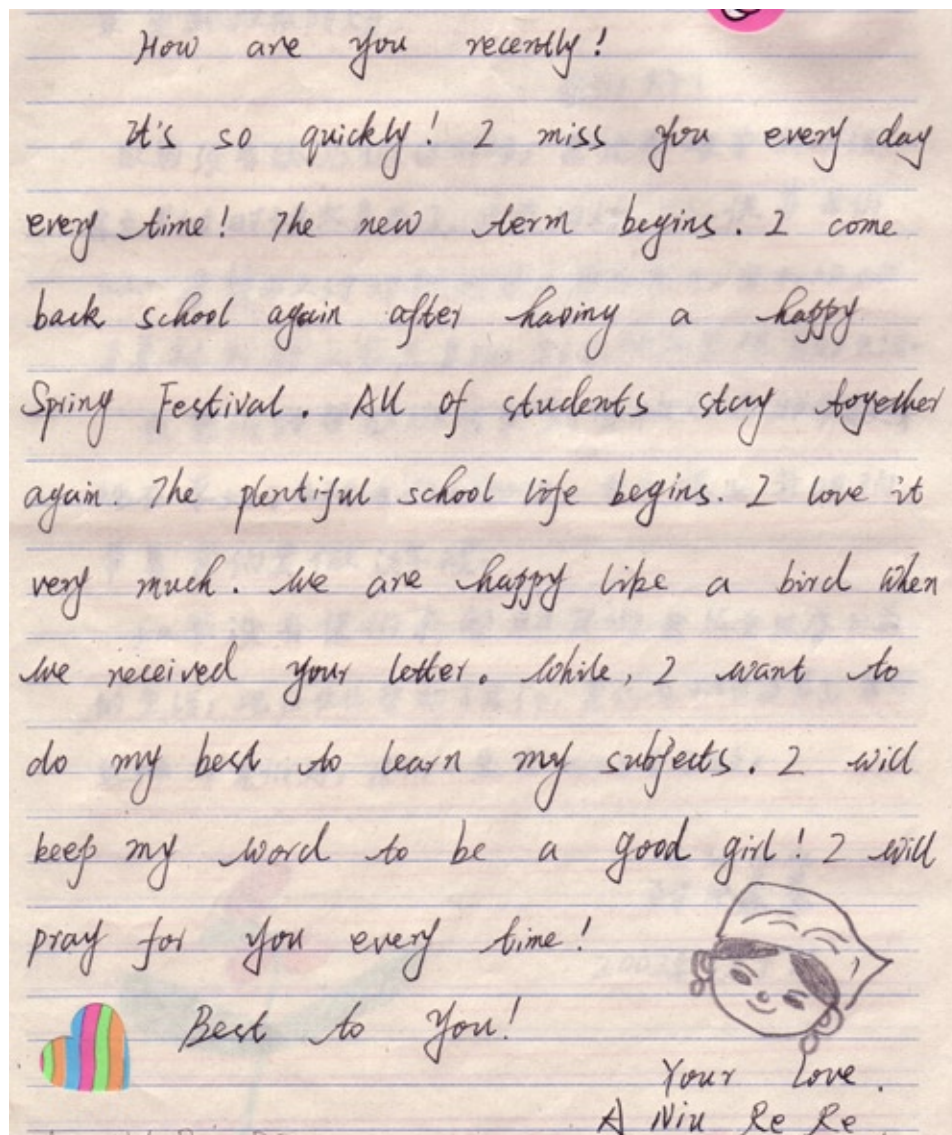 How are you recently!
It's so quickly! I miss you every day
every time! The new term begins. I come
back school again after having a happy
Spring Festival. All of students stay together
again. The plentiful school life begins. I love it
very much. We are happy like a bird when
we received your letter. While, I want to
do my best to learn my subjects. I will
keep my word to be a good girl! I will
pray for you every time!
Best to You!
Your love.
A Niu Re Re